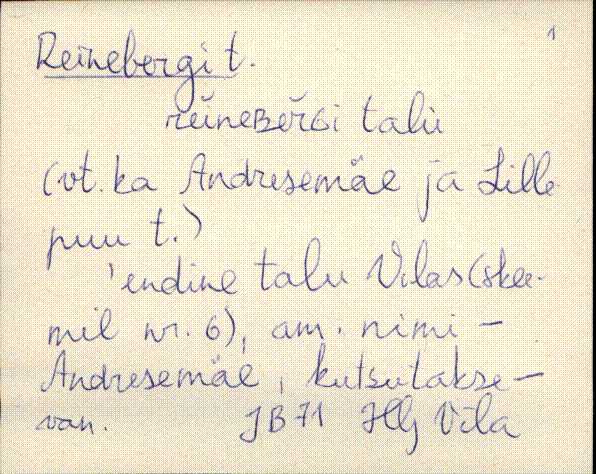 1
Reinebergi t.
reineʙeřɢi talu
(vt. ka Andresemäe ja Lille
puu t.)
'endine talu Vilas (skee-
mil nr. 6), am. nimi –
Andresemäe, kutsutakse –
van. JB 71 Hlj Vila